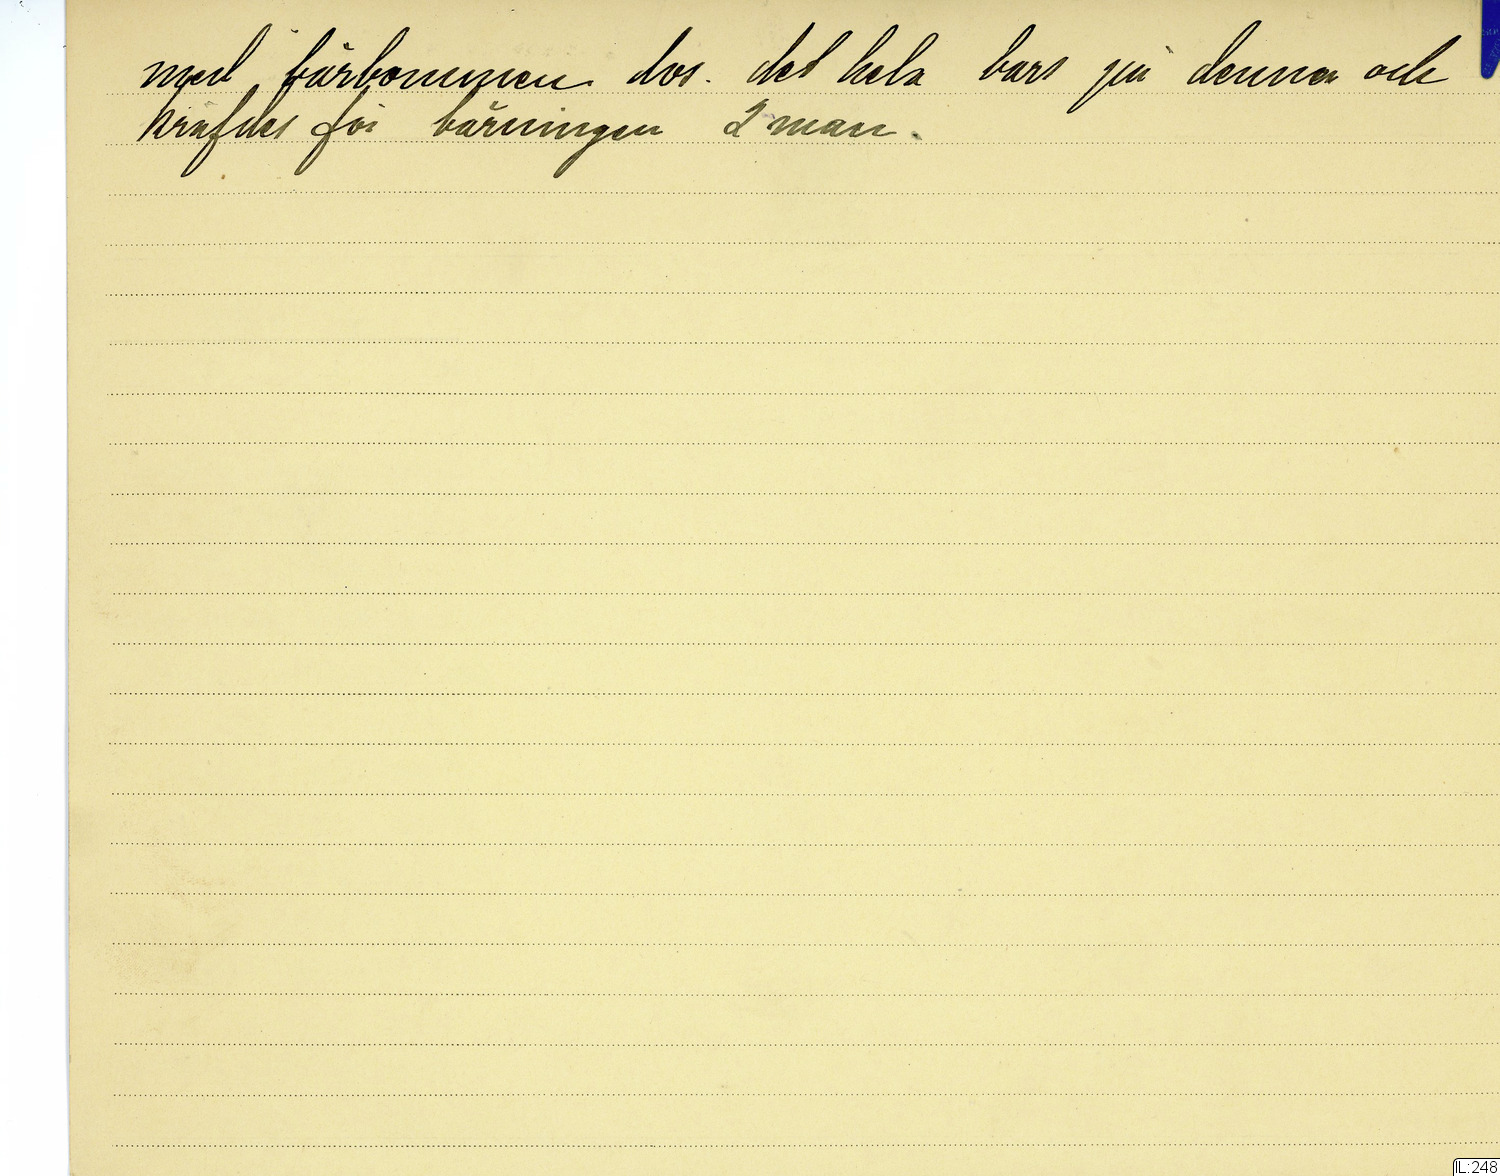 med bärbommen dvs. det hela bars på denna och
kräfdes för bärningen 2 man.
IL:248